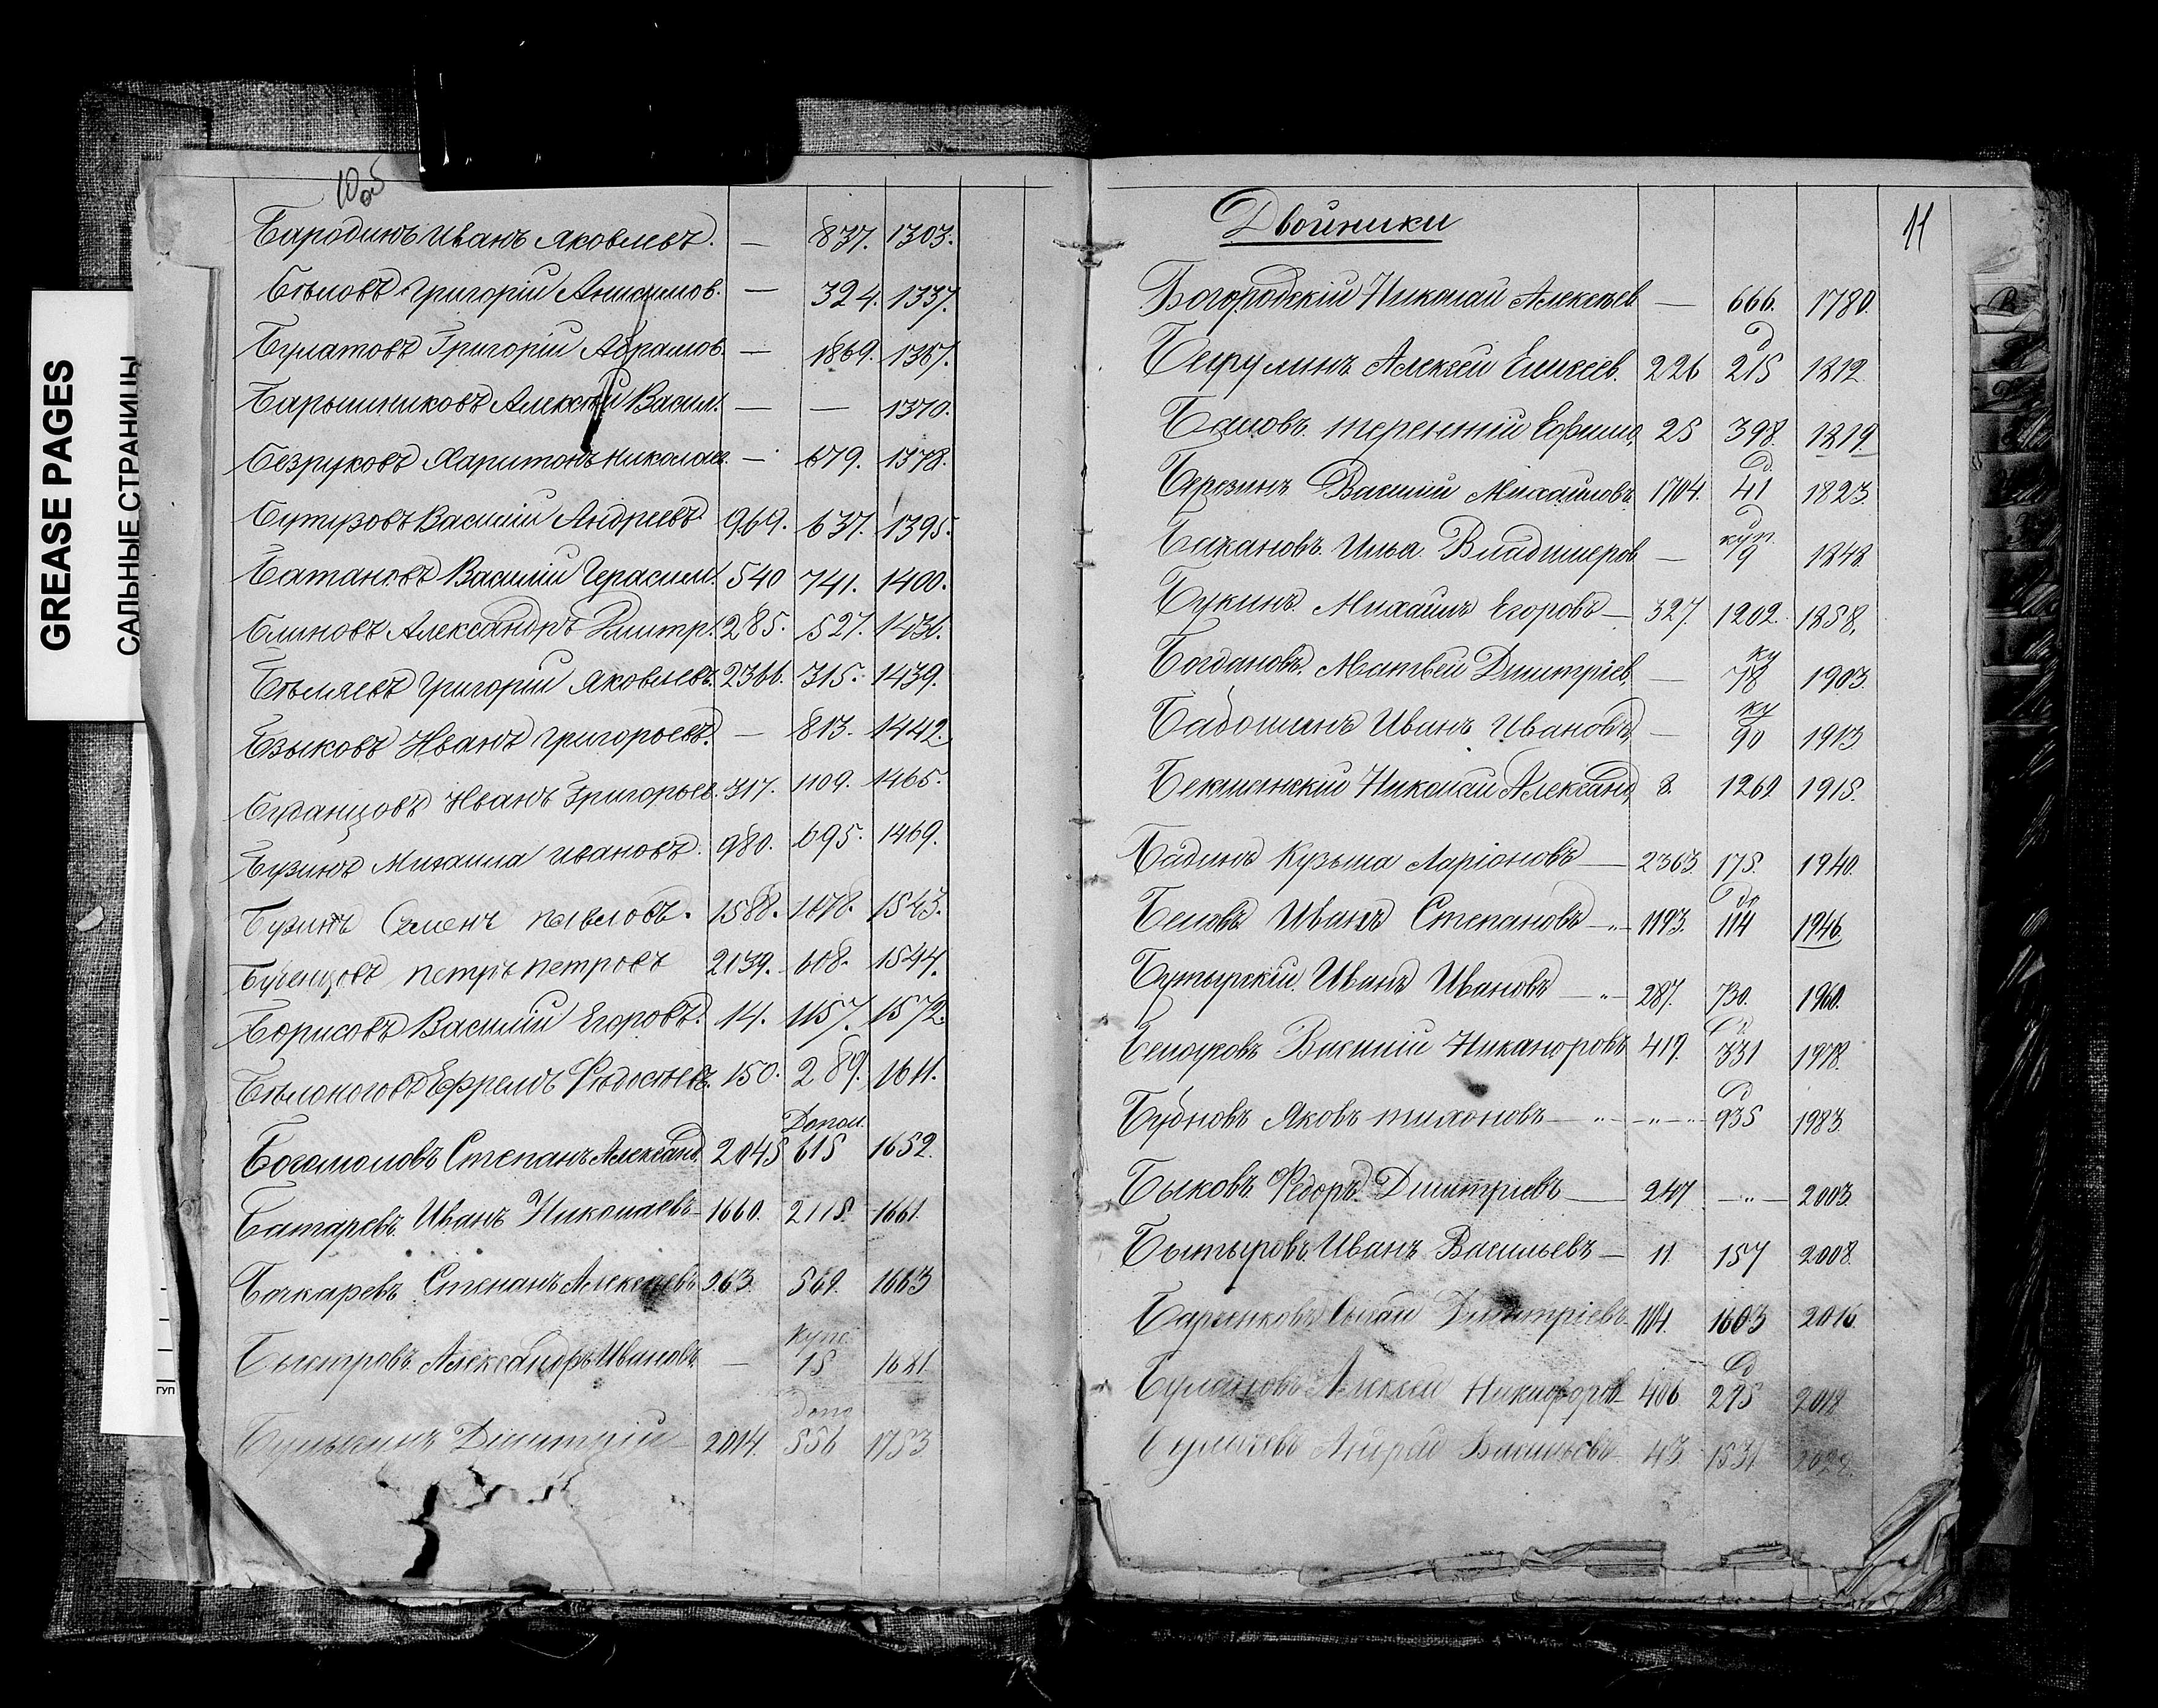 GREASE PAGES
САЛЬНЫЕ СТРАНИЦЫ
10об
Бародинъ Иванъ Яковлевъ. — 837. 1303.
Бѣловъ Григорій Анисимов. — 324. 1337.
Булатовъ Григорій Абрамов. — 1869. 1367.
Барышниковъ Алексѣй Васил. — — 1370.
Безруковъ Харитонъ Николаев. — 679. 1378.
Бутузовъ Василій Андреевъ 969. 637. 1395.
Батановъ Василій Герасим. 540 741. 1400.
Блиновъ Александръ Дмитр. 285. 527. 1436.
Бѣляевъ Григорій Яковлевъ. 2366. 315. 1439.
Бзыковъ Иванъ Григорьевъ. — 813. 1442.
Буданцовъ Иванъ Григорьев. 317. 1109. 1465.
Бузинъ Михаила Ивановъ. 980. 695. 1469.
Бузинъ Семенъ Павловъ. 1588. 1078. 1543.
Петръ Петровъ 2039. 608. 1544.
Борисовъ Василій Егоровъ. 14. 1157. 1572.
Бѣлоноговъ Ефремъ Федосѣевъ. 150. 289. 1611.
Допол.
Богомоловъ Степанъ Александ. 2045 615 1652.
Батаревъ Иванъ Николаевъ 1660. 2118. 1661.
Бочкаревъ Степанъ Алексѣевъ 263. 569. 1663
Купс
Быстровъ Александръ Ивановъ — 15 1681
допо
Дмитрій 2014. 556 1753.
11
Двойники
Богородскій Николай Алексѣев — 666. 1780.
Д
Алексѣй Елисеев. 226 215 1812.
Баловъ Терентій Ефимо. 25 398. 1819.
Д.
Березинъ Василій Михайловъ 1704. 41 1823.
Д
куп.
Бажановъ Илья Владимеров — 9 1848.
Букинъ Михаилъ Егоровъ — 327. 1202. 1858.
ку
Богдановъ Матвѣй Дмитріев. — 78 1903.
ку
Бабошинъ Иванъ Ивановъ — 90 1913
Николай Александ. 8. 1269 1915.
Бабинъ Кузьма Ларіоновъ — 2363. 175. 1940.
До
Беловъ Иванъ Степановъ — 1193. 114 1946
Бутырскій Иванъ Ивановъ — 287. 730. 1960.
Василій Никаноровъ 419. 331 1978.
Д
Бубновъ Яковъ Тихоновъ — 935 1983.
Быковъ Федоръ Дмитріевъ — 247 — 2003.
Бытыровъ Иванъ Васильевъ — 11. 157 2008.
Дмитріевъ 1603 2016.
Д
Алексѣй Никифоров 406. 295 2018
Андрей Васильевъ 43. 1531